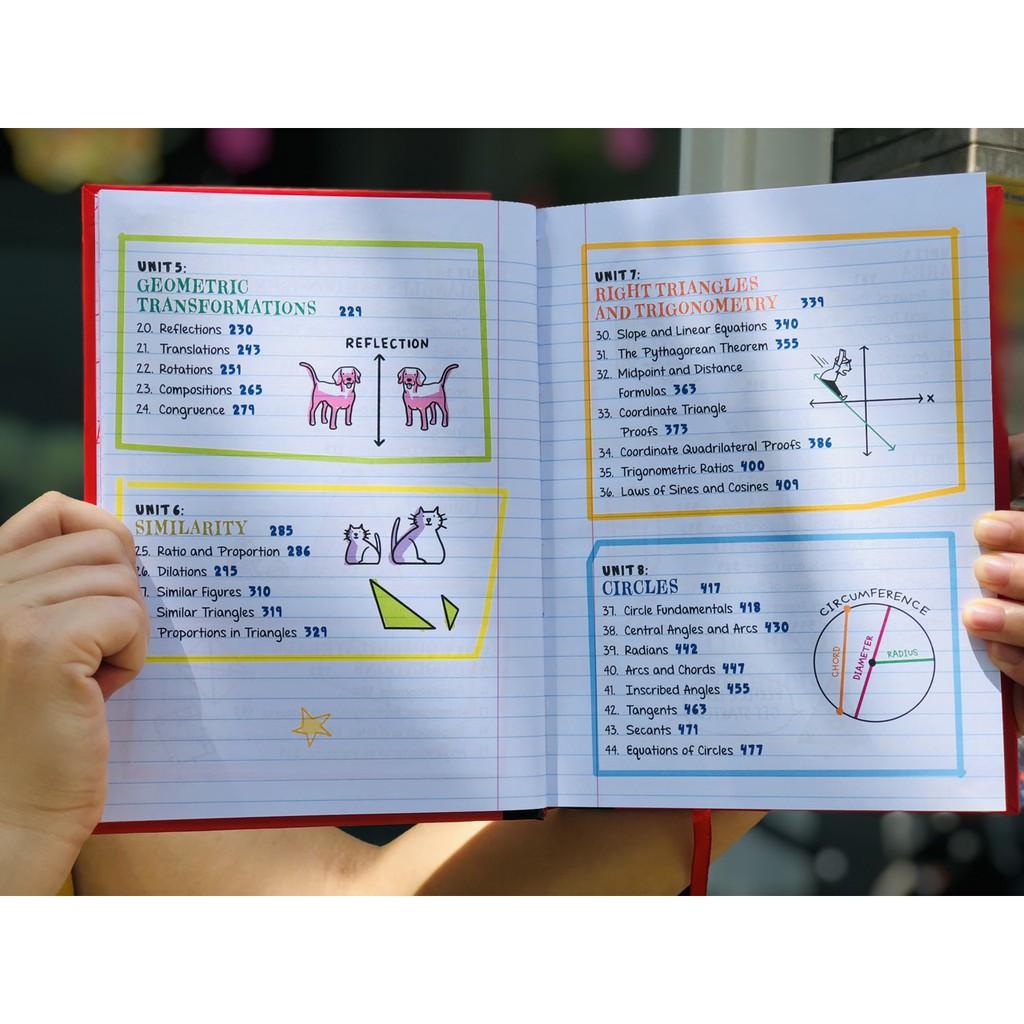 UNIT 5:
GEOMETRIC
TRANSFORMATIONS 229
20. Reflections 230
21. Translations 243
22. Rotations 251
23. Compositions 265
24. Congruence 279
REFLECTION
UNIT 6:
SIMILARITY 285
25. Ratio and Proportion 286
26. Dilations 295
7. Similar Figures 310
Similar Triangles 319
Proportions in Triangles 329
UNIT 7:
RIGHT TRIANGLES
AND TRIGONOMETRY 339
30. Slope and Linear Equations 340
31. The Pythagorean Theorem 355
32. Midpoint and Distance
Formulas 363
33. Coordinate Triangle
Proofs 373
34. Coordinate Quadrilateral Proofs 386
35. Trigonometric Ratios 400
36. Laws of Sines and Cosines 409
x
UNIT 8:
CIRCLES 417
37. Circle Fundamentals 418
38. Central Angles and Arcs 430
39. Radians 442
40. Arcs and Chords 447
41. Inscribed Angles 455
42. Tangents 463
43. Secants 471
44. Equations of Circles 477
CIRCUMFERENCE
CHORD
DIAMETER
RADIUS